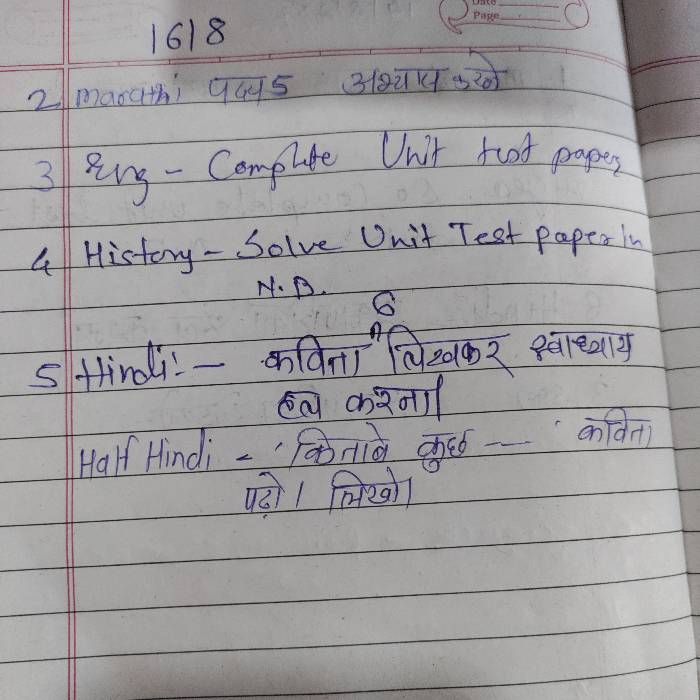 Date
Page
16/8
2 Marathi पद्य 5 अभ्यास करणे
3 Eng - Complete Unit test paper
4 History - Solve Unit Test paper in
N.B.
6
5 Hindi :- कविता लिखकर स्वाध्याय
हल करना।
Half Hindi - 'किताबे कुछ ---- ' कविता
पढ़ो। लिखो।